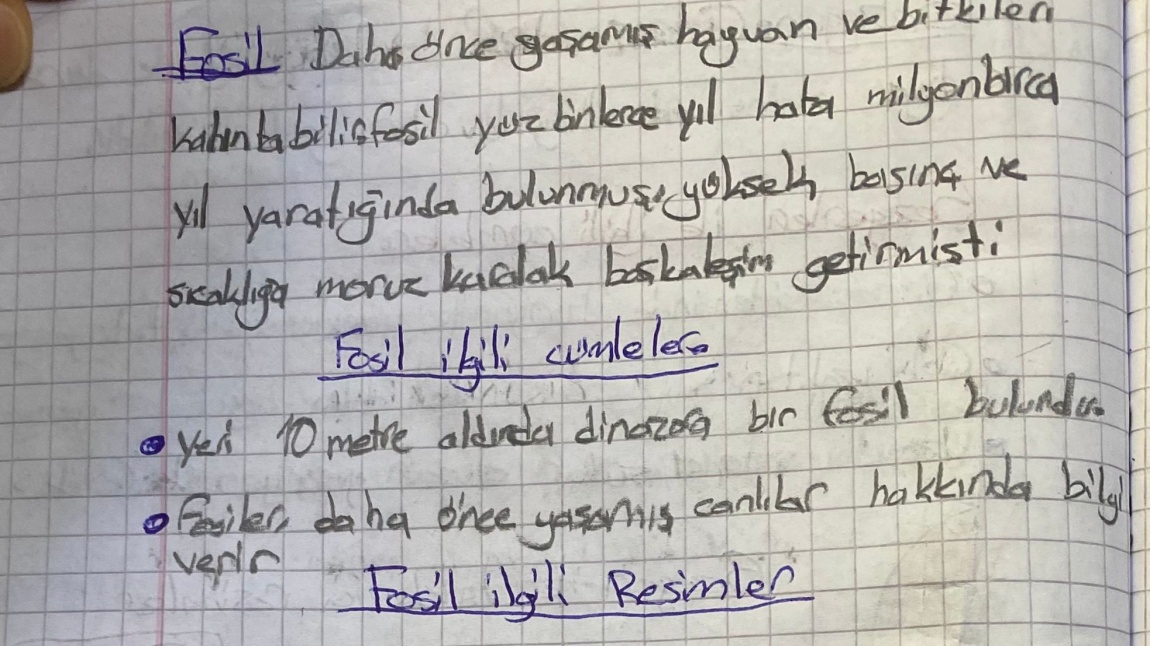 Fosil Daha önce yaşamış hayvan ve bitkiler
yüz binlerce yıl hata milyonbirca
yıl yaratığında bulunmuş, yüksek basınç ve
sıcaklığa moruz karalak başkaleşim getirmişti
Fosil ilgili cumleler
• yeri 10 metre aldında dinazora bir fosil bulundu.
• Fosiler daha önce yaşamış canlılar hakkında bilgi
verir
Fosil ilgili Resimler